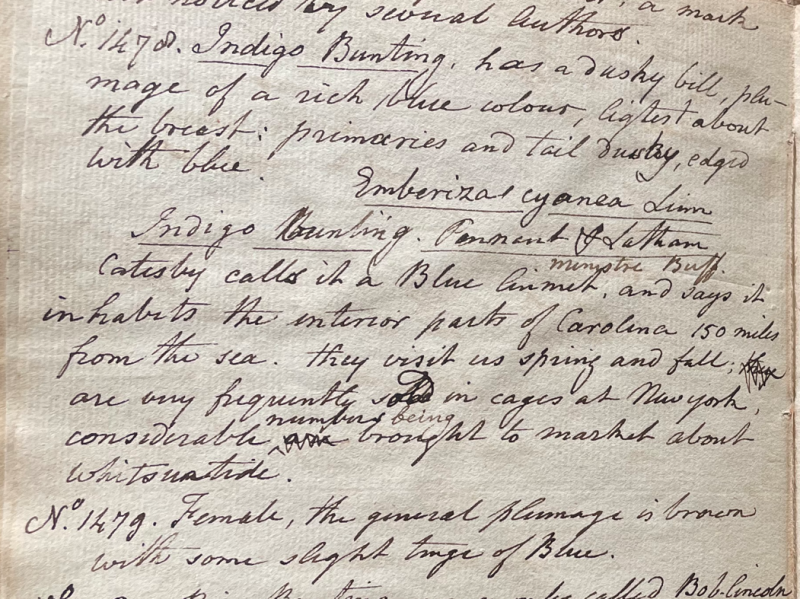 noticed by several Authors, a mark
No. 1478. Indigo Bunting, has a dusky bill, plu-
mage of a rich blue colour, ligtest about
the breast: primaries and tail dusky, edged
with blue.
Emberiza cyanea Linn
Indigo Bunting. Pennant & Latham
ministre Buff.
Catesby calls it a Blue linnet, and says it
inhabits the interior parts of Carolina 150 miles
from the sea. they visit us spring and fall;
are very frequently sold in cages at New york,
considerable numbers being brought to market about
whitsuntide.
No. 1479. Female, the general plumage is brown
with some slight tinge of Blue.
called Bob-lincoln